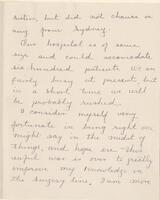 notice, but did not chance on
any from Sydney.
Our hospital is of some
size and could accomodate
six hundred patients. We are
fairly busy at present, but
in a short time we will
be probably rushed.
I consider myself very
fortunate in being right on,
might say in the midst of
things, and hope ere this
awful war is over to greatly
improve my knowledge in
the surgery line. I am more